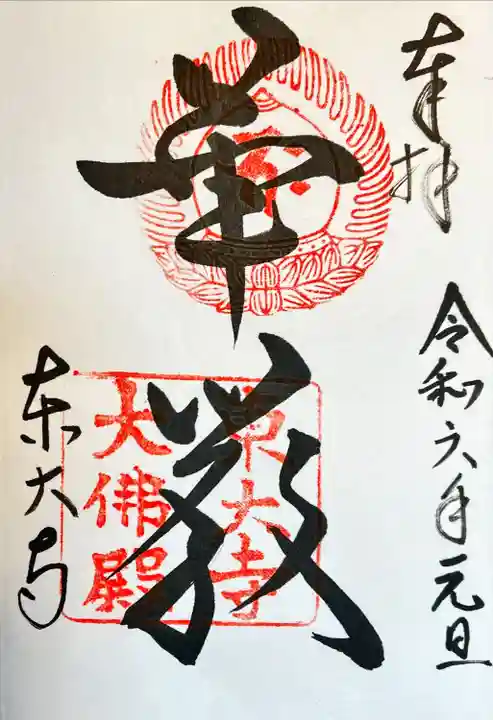 奉拝
令和六年元旦
華厳
東大寺
大佛殿
東大寺